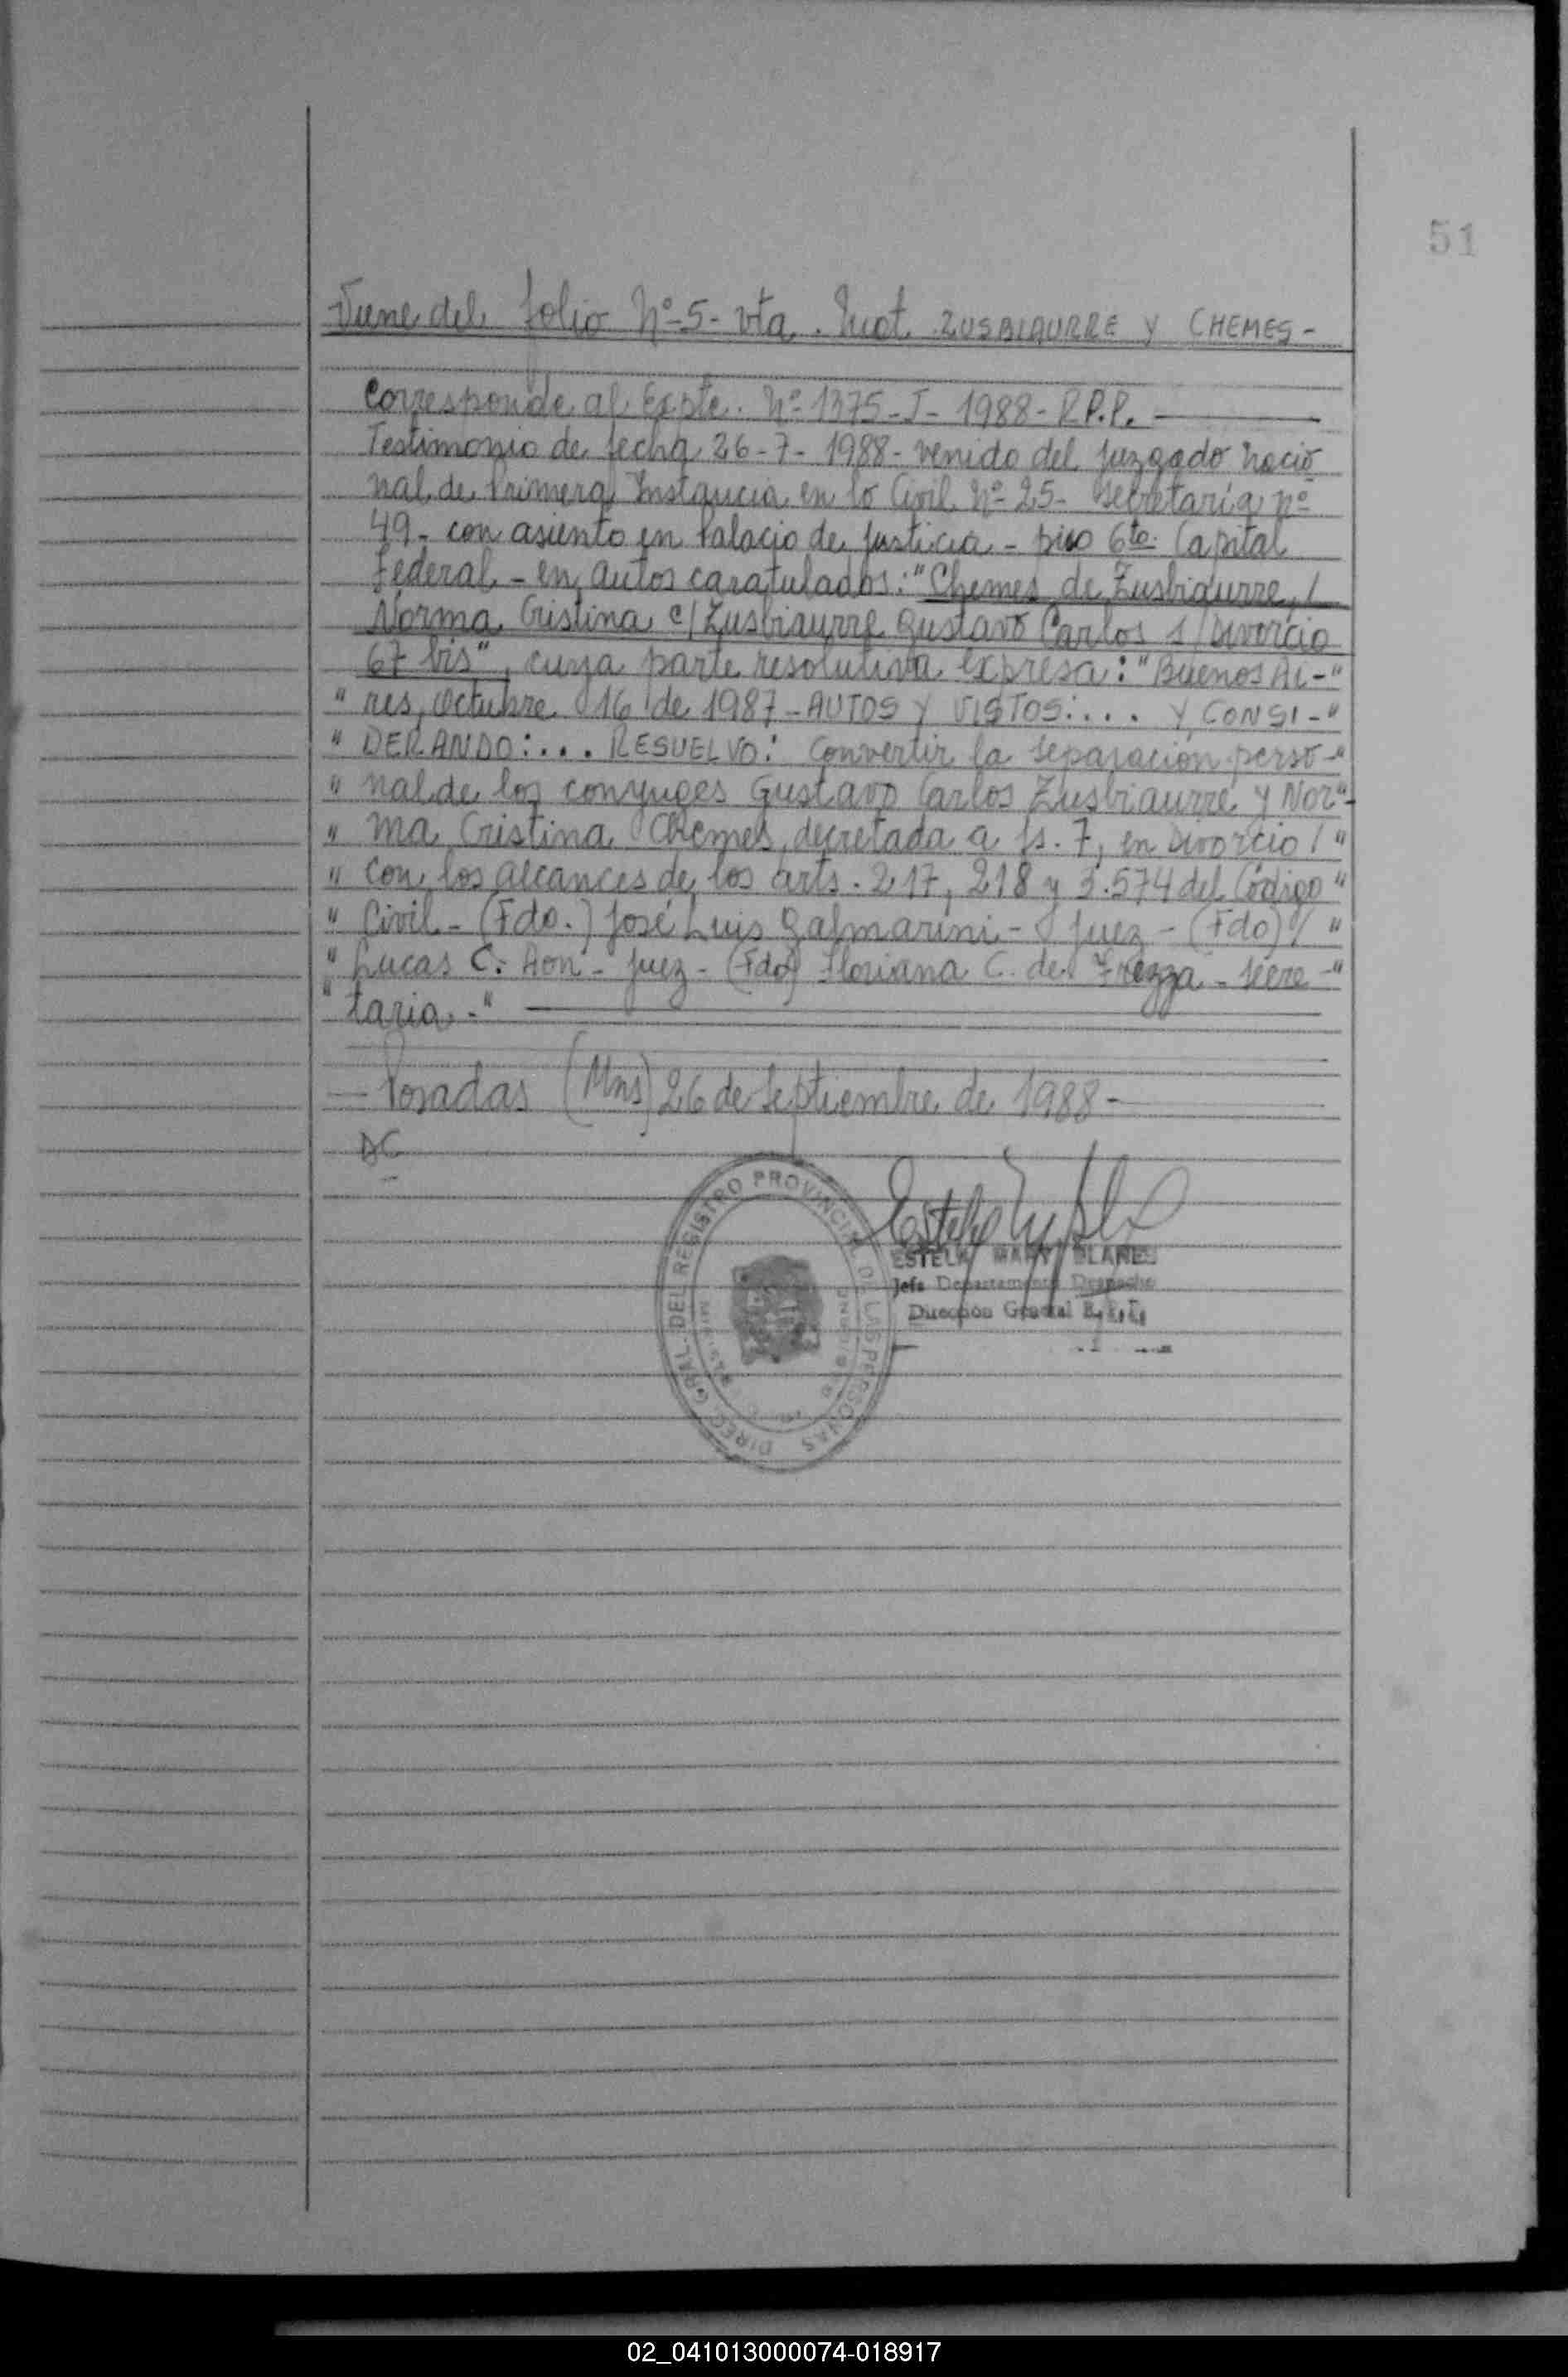 51
Viene del folio Nº-5- vta. Inot. ZUSBIAURRE Y CHEMES-
Corresponde al Expte. Nº 1375-J- 1988- R.P.P.
Testimonio de fecha 26-7-1988- venido del Juzgado Nacio
nal de Primera Instancia en lo Civil Nº 25- Secretaría nº
49- con asiento en Palacio de Justicia - piso 6to. Capital
Federal - en autos caratulados: "Chemes de Zusbiaurre, /
Norma Cristina c/ Zusbiaurre Gustavo Carlos s/ Divorcio
67 bis", cuya parte resolutiva expresa: "Buenos Ai-"
" res, Octubre 16 de 1987 - AUTOS Y VISTOS:.... Y CONSI-"
" DERANDO:... RESUELVO: Convertir la separación perso-"
" nal de los conyuges Gustavo Carlos Zusbiaurre y Nor"-
" ma Cristina Chemes, decretada a fs. 7, en Divorcio / "
" con los alcances de los arts. 217, 218 y 3.574 del Código "
" Civil - (Fdo.) José Luis Galmarini - Juez - (Fdo) / "
" Lucas C. Aon - Juez - (Fdo) Floriana C. de Frezza - Secre -"
" taria -"
- Posadas (Mns) 26 de Septiembre de 1988-
DC
DIREC. GRAL. DEL REGISTRO PROVINCIAL DE LAS PERSONAS
ESTELA MARY BLANES
Jefa Departamento Despacho
Dirección General R.P.P.
02_041013000074-018917